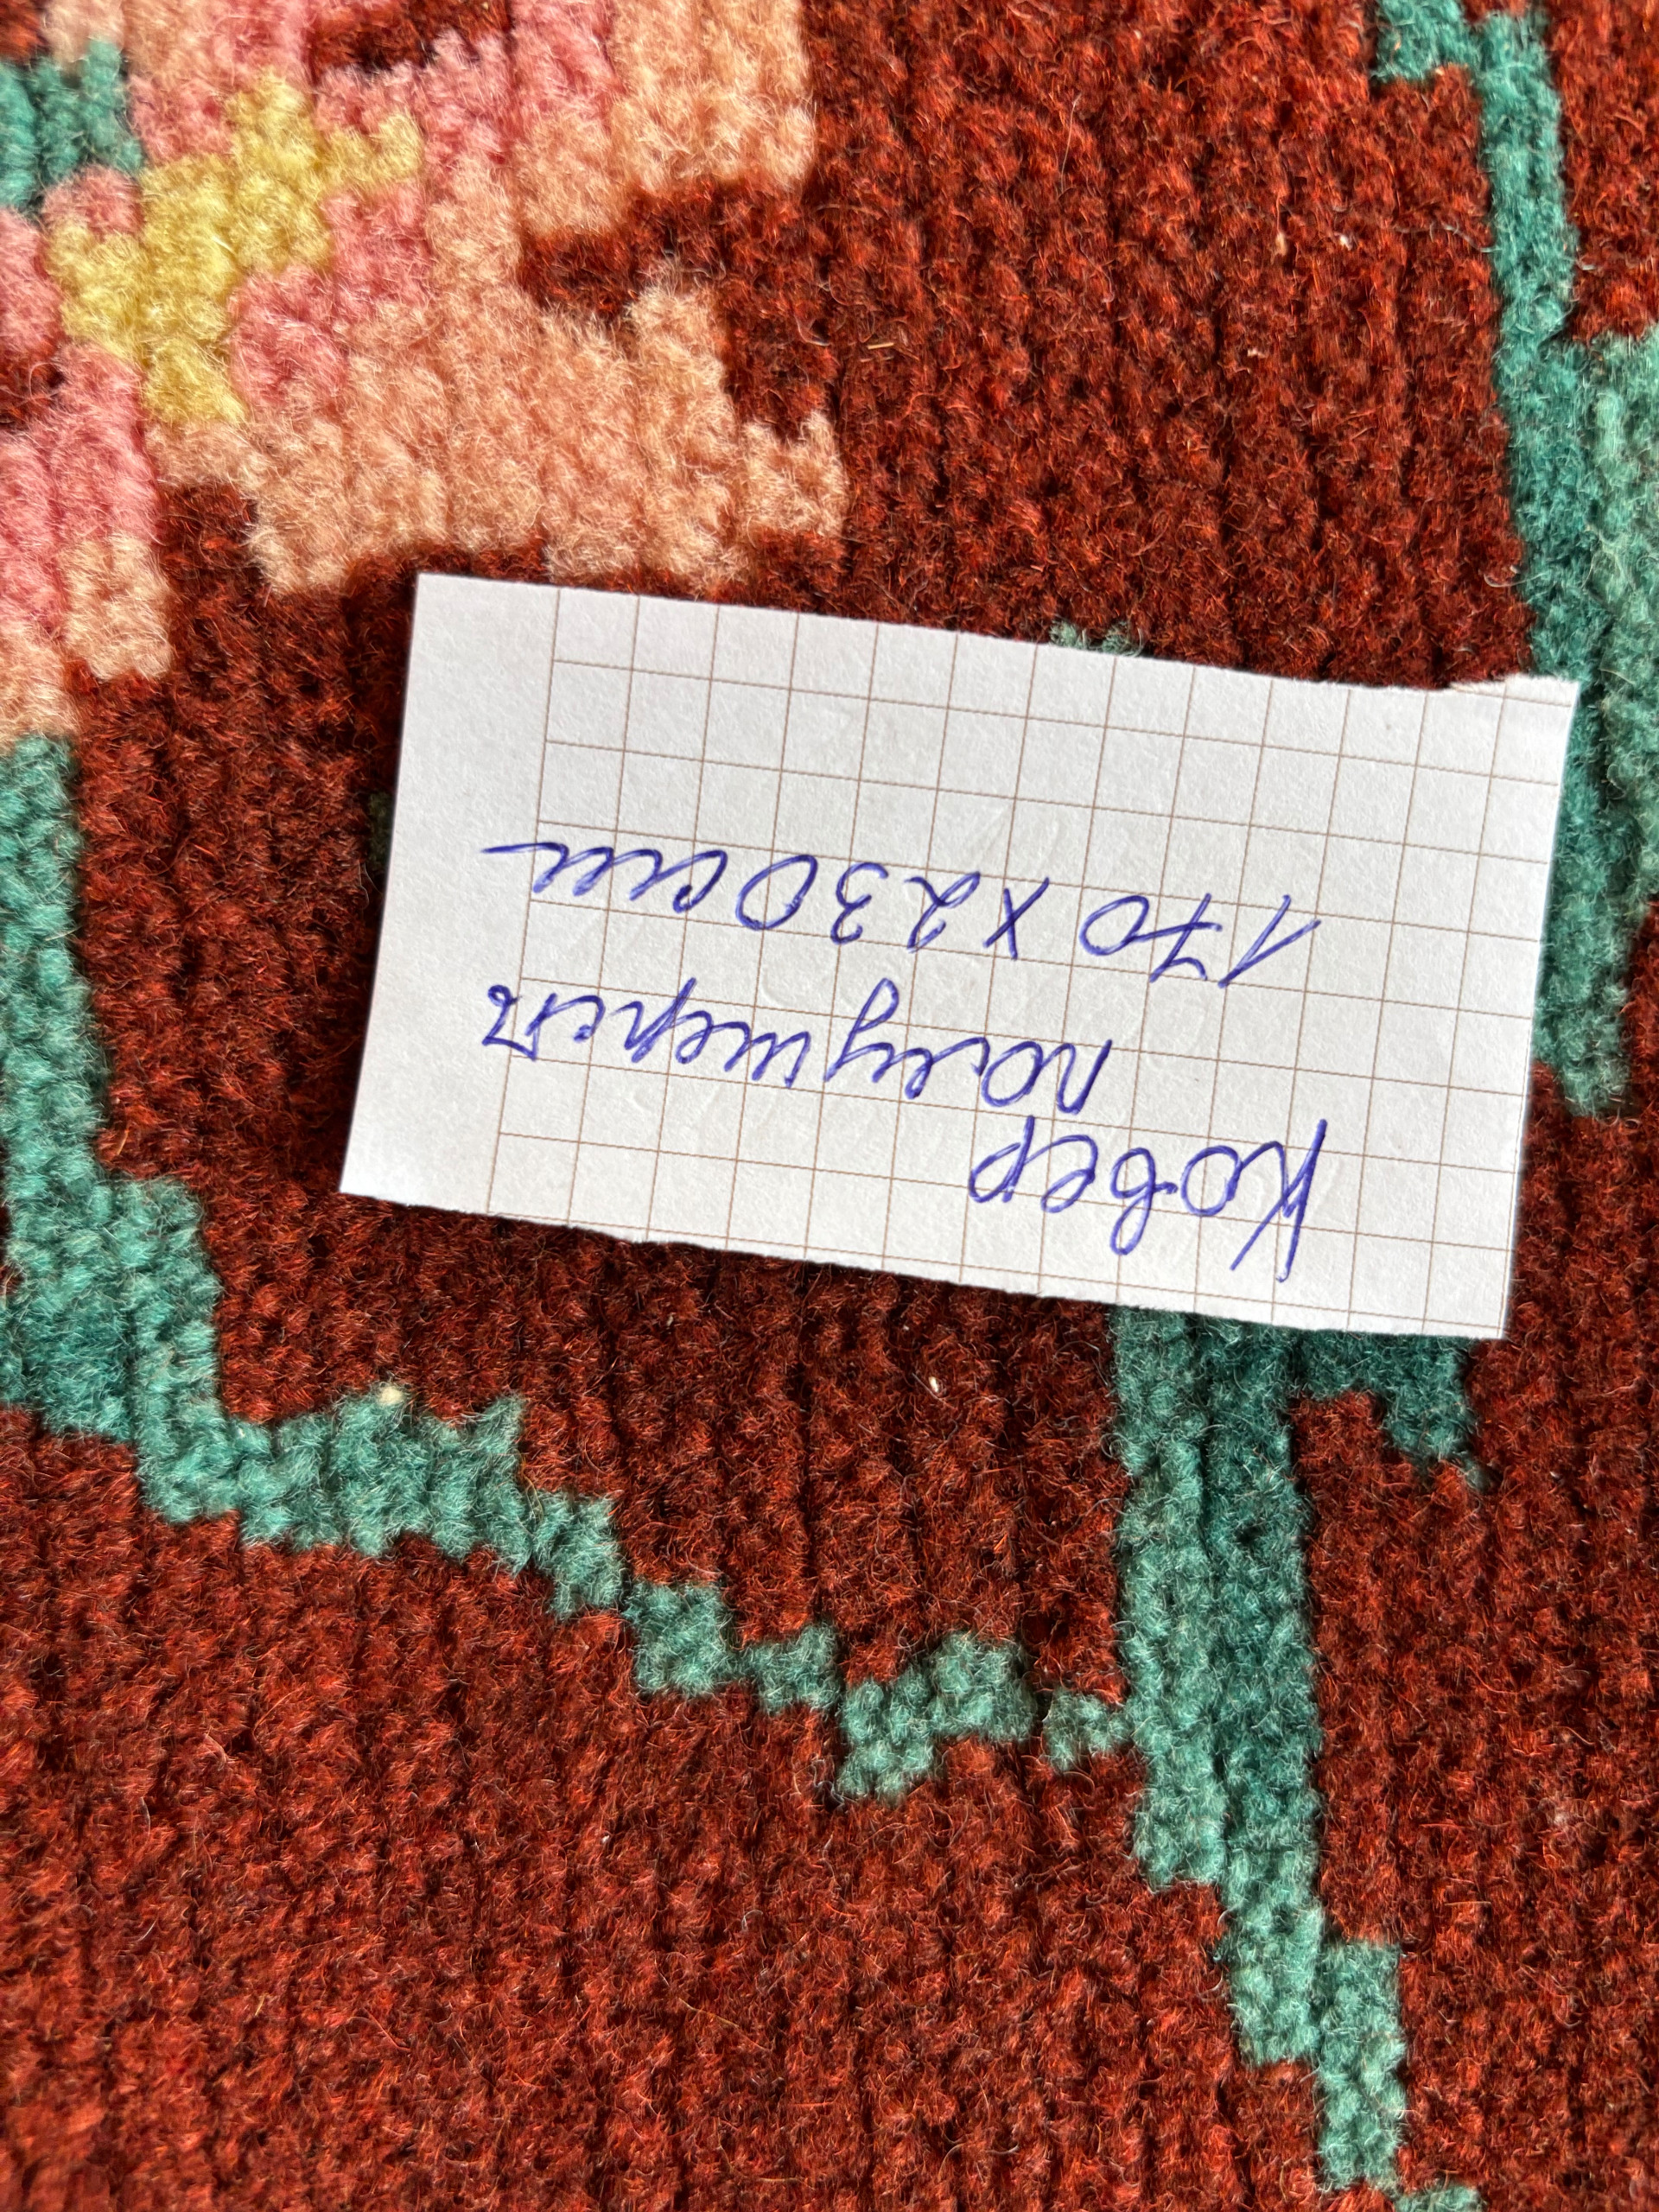 Ковер
полушерст
170 х 230 см